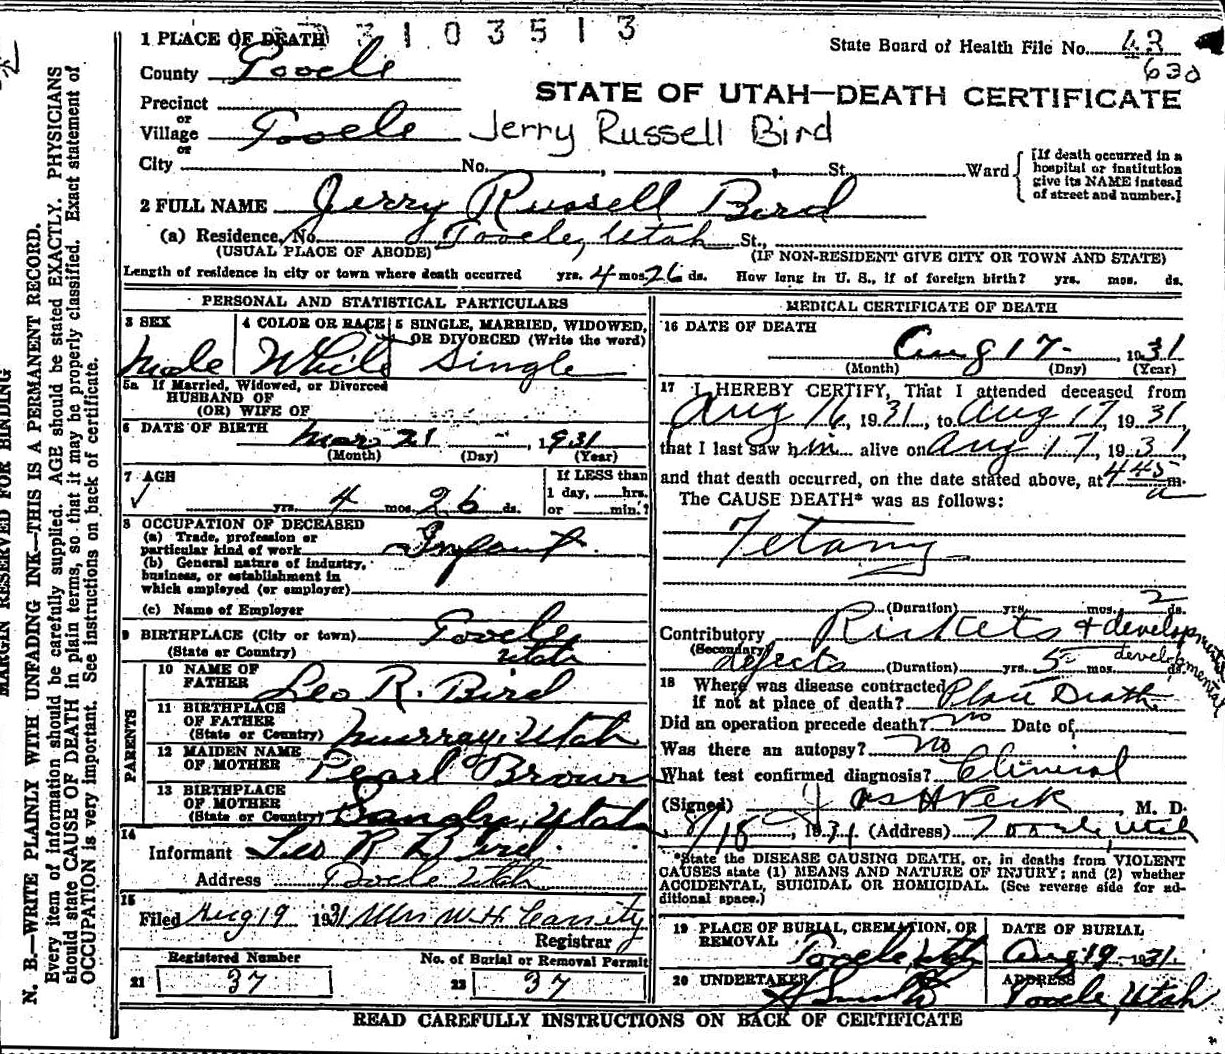 3103513
1 PLACE OF DEATH
State Board of Health File No. 43
630
County Tooele
STATE OF UTAH—DEATH CERTIFICATE
Precinct
or
Village Tooele Jerry Russell Bird
or
City No. , , St. Ward
[If death occurred in a
hospital or institution
give its NAME instead
of street and number.]
2 FULL NAME Jerry Russell Bird
(a) Residence, No. Tooele, Utah St.,
(USUAL PLACE OF ABODE) (IF NON-RESIDENT GIVE CITY OR TOWN AND STATE)
Length of residence in city or town where death occurred yrs. 4 mos. 26 ds. How long in U. S., if of foreign birth? yrs. mos. ds.
PERSONAL AND STATISTICAL PARTICULARS
3 SEX 4 COLOR OR RACE 5 SINGLE, MARRIED, WIDOWED,
OR DIVORCED (Write the word)
Male White Single
5a If Married, Widowed, or Divorced
HUSBAND OF
(OR) WIFE OF
6 DATE OF BIRTH Mar 21 - 1931
(Month) (Day) (Year)
7 AGE If LESS than
1 day, hrs.
yrs. 4 mos. 26 ds. or min.?
8 OCCUPATION OF DECEASED
(a) Trade, profession or
particular kind of work Infant
(b) General nature of industry,
business, or establishment in
which employed (or employer)
(c) Name of Employer
9 BIRTHPLACE (City or town) Tooele
(State or Country) Utah
PARENTS
10 NAME OF
FATHER Leo R. Bird
11 BIRTHPLACE
OF FATHER
(State or Country) Murray, Utah
12 MAIDEN NAME
OF MOTHER Pearl Brown
13 BIRTHPLACE
OF MOTHER
(State or Country) Sandy, Utah
14
Informant Leo R Bird
Address Tooele Utah
15
Filed Aug 19 1931 Mrs W.H. Cassity
Registrar
Registered Number No. of Burial or Removal Permit
21 37 22 37
MEDICAL CERTIFICATE OF DEATH
16 DATE OF DEATH
Aug 17 - , 1931
(Month) (Day) (Year)
17 I HEREBY CERTIFY, That I attended deceased from
Aug 16, 1931, to Aug 17, 1931
that I last saw him alive on Aug 17, 1931
and that death occurred, on the date stated above, at 4 45 a m.
The CAUSE DEATH* was as follows:
Tetany
(Duration) yrs. mos. 2 ds.
Contributory Rickets & developmental
(Secondary)
defects (Duration) yrs. 5 mos. ds.
developmental
18 Where was disease contracted
if not at place of death? Place Death
Did an operation precede death? no Date of
Was there an autopsy? no
What test confirmed diagnosis? Clinical
(Signed) Jos H Peck M. D.
8/18, 1931 (Address) Tooele, Utah
*State the DISEASE CAUSING DEATH, or, in deaths from VIOLENT
CAUSES state (1) MEANS AND NATURE OF INJURY; and (2) whether
ACCIDENTAL, SUICIDAL OR HOMICIDAL. (See reverse side for ad-
ditional space.)
19 PLACE OF BURIAL, CREMATION, OR
REMOVAL Tooele, Utah
DATE OF BURIAL
Aug 19 1931.
20 UNDERTAKER
ADDRESS
Tooele, Utah
READ CAREFULLY INSTRUCTIONS ON BACK OF CERTIFICATE
MARGIN RESERVED FOR BINDING
N. B.—WRITE PLAINLY WITH UNFADING INK—THIS IS A PERMANENT RECORD.
Every item of information should be carefully supplied. AGE should be stated EXACTLY. PHYSICIANS
should state CAUSE OF DEATH in plain terms, so that it may be properly classified. Exact statement of
OCCUPATION is very important. See instructions on back of certificate.